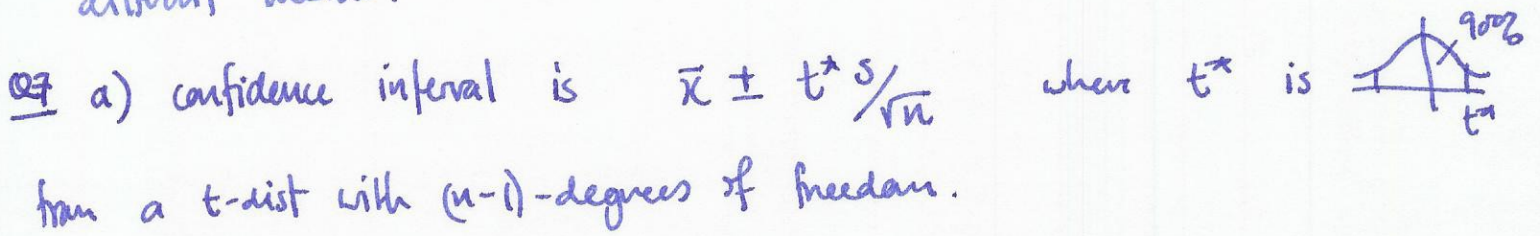 Q7 a) confidence interval is x̄ ± t* s/√n where t* is 90% t*
from a t-dist with (n-1)-degrees of freedom.